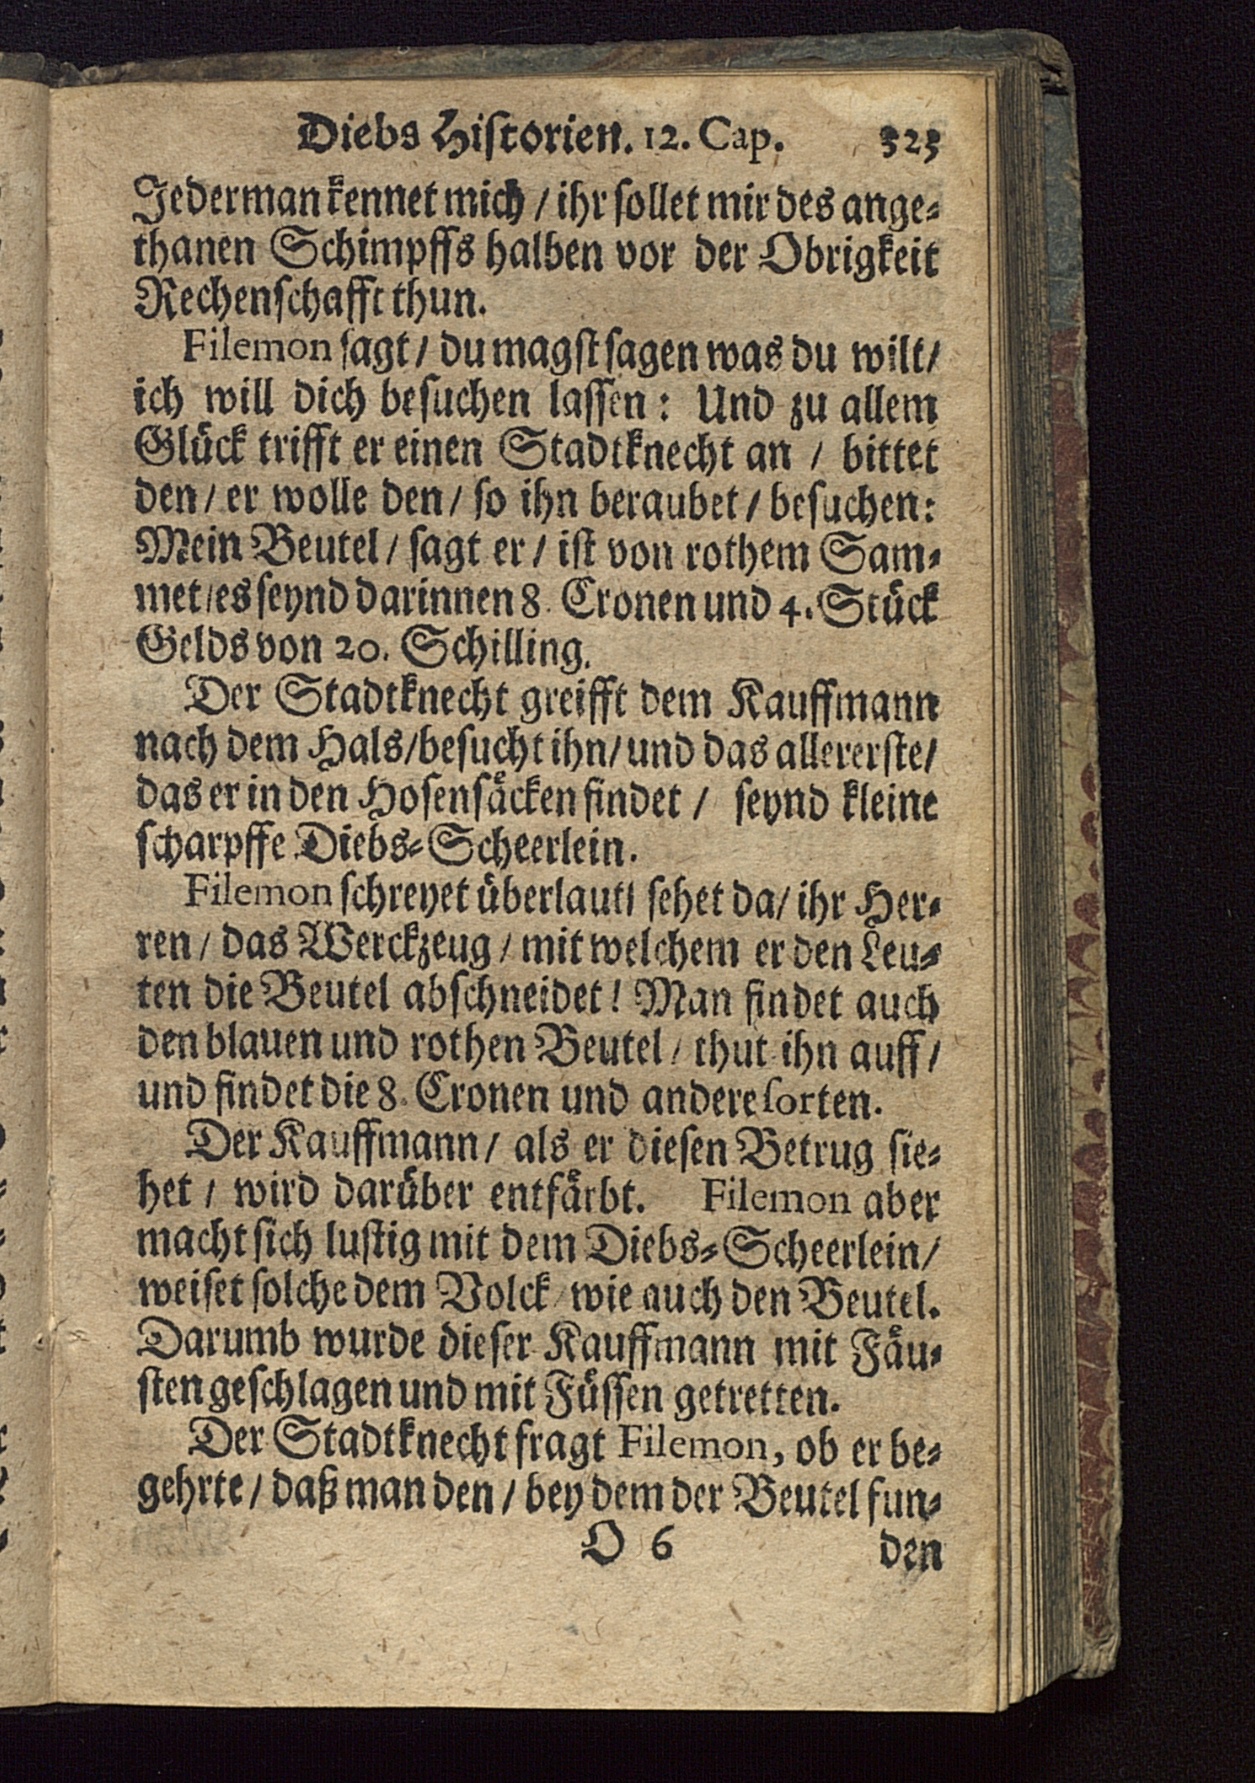 Diebs Historien. 12. Cap. 323
Jederman kennet mich / ihr sollet mir des ange-
thanen Schimpffs halben vor der Obrigkeit
Rechenschafft thun.
Filemon sagt / du magst sagen was du wilt /
ich will dich besuchen lassen: Und zu allem
Glück trifft er einen Stadtknecht an / bittet
den / er wolle den / so ihn beraubet / besuchen:
Mein Beutel / sagt er / ist von rothem Sam-
met / es seynd darinnen 8. Cronen und 4. Stück
Gelds von 20. Schilling.
Der Stadtknecht greifft dem Kauffmann
nach dem Hals / besucht ihn / und das allererste /
das er in den Hosensäcken findet / seynd kleine
scharpffe Diebs-Scheerlein.
Filemon schreyet überlaut / sehet da / ihr Her-
ren / das Werckzeug / mit welchem er den Leu-
ten die Beutel abschneidet! Man findet auch
den blauen und rothen Beutel / thut ihn auff /
und findet die 8. Cronen und andere sorten.
Der Kauffmann / als er diesen Betrug sie-
het / wird darüber entfärbt. Filemon aber
macht sich lustig mit dem Diebs-Scheerlein /
weiset solche dem Volck / wie auch den Beutel.
Darumb wurde dieser Kauffmann mit Fäu-
sten geschlagen und mit Füssen getretten.
Der Stadtknecht fragt Filemon, ob er be-
gehrte / daß man den / bey dem der Beutel fun-
O 6 den